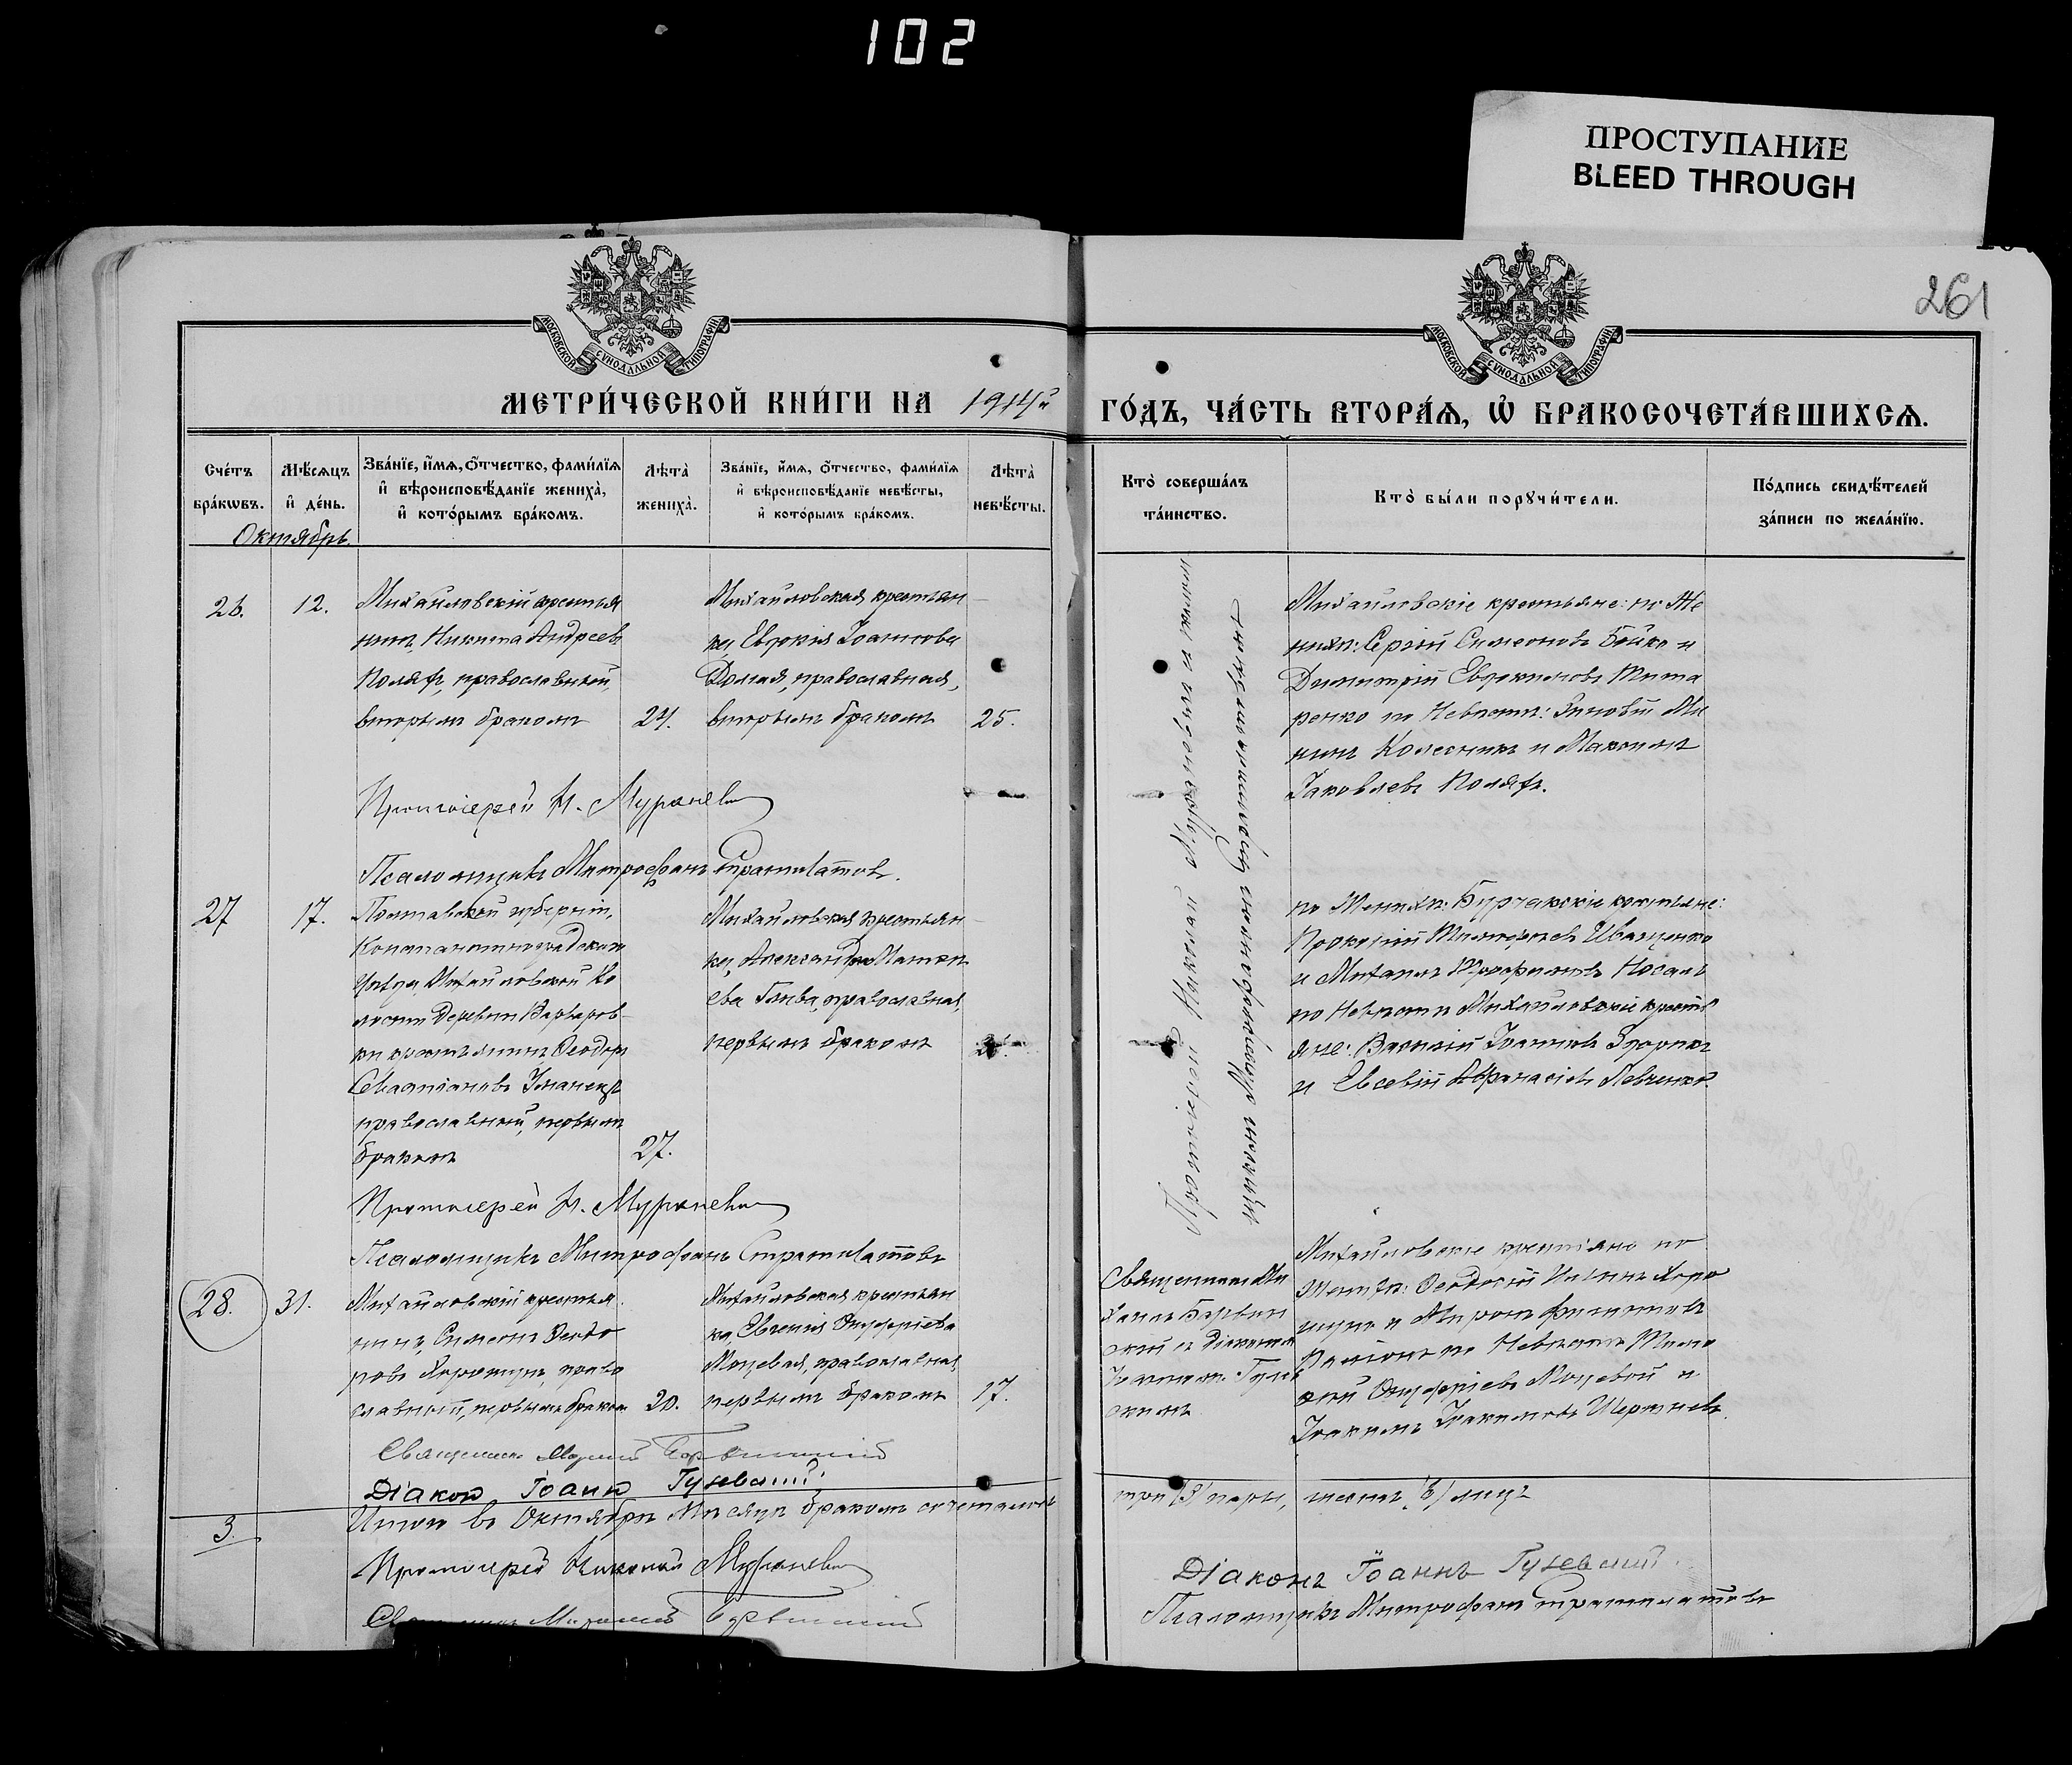 102
ПРОСТУПАНИЕ
BLEED THROUGH
261
МОСКОВСКОЙ СУНОДАЛЬНОЙ ТИПОГРАФІИ
МОСКОВСКОЙ СУНОДАЛЬНОЙ ТИПОГРАФІИ
МЕТРИ́ЧЕСКОЙ КНИ́ГИ НА 1914й ГО́ДЪ, ЧА́СТЬ ВТОРА́Ѧ, Ѡ҆ БРАКОСОЧЕТА́ВШИХСѦ.
Сче́тъ бра́кѡвъ.
Мѣ́сѧцъ и҆ де́нь.
Зва́нїе, и҆́мѧ, ѻ҆́тчество, фами́лїѧ и҆ вѣроисповѣ́данїе жениха̀, и҆ кото́рымъ бра́комъ.
Лѣта̀ жениха̀.
Зва́нїе, и҆́мѧ, ѻ҆́тчество, фами́лїѧ и҆ вѣроисповѣ́данїе невѣ́сты, и҆ кото́рымъ бра́комъ.
Лѣта̀ невѣ́сты.
Кто̀ соверша́лъ та́инство.
Кто̀ бы́ли порꙋчи́тели.
По́дпись свидѣ́телей за́писи по жела́нїю.
Октябрь.
26.
12.
Михайловскій крестья
нинъ, Никита Андреевъ
Коляфъ, православный,
вторымъ бракомъ
24.
Михайловская крестьян
ка, Евдокія Іоаннова
православная,
вторымъ бракомъ
25.
Михайловскіе крестьяне: по Же
нихѣ: Сергій Симеоновъ Бойко и
Димитрій Евдокимовъ Тита
ренко по Невѣстѣ: Зиновій Ми
нинъ Колесникъ и Максимъ
Іаковлевъ Коляфъ.
Протоіерей Н. Мураневичъ
Псаломщикъ Митрофанъ Стратилатовъ.
Протоіерей Николай Мураневичъ и
щикомъ Митрофаномъ Стратилатовымъ
27
17.
Полтавской губерніи,
Константиноградскаго
уѣзда, Михайловской Во
лости деревни Варваров
ки крестьянинъ Ѳеодоръ
Севастіановъ Уманецъ
православный, первымъ
бракомъ
27.
Михайловская крестьян
ка, Александра Матѳе
ева православная,
первымъ бракомъ
по Женихѣ: Бурчакскіе крестьяне:
Прокопій Тимоѳеевъ Иващенко
и Михаилъ Трофимовъ Носаль
по Невѣстѣ Михайловскіе кресть
яне: Василій Іоанновъ
и Евсевій Аѳанасіевъ Левченко.
Протоіерей Н. Мураневичъ
Псаломщикъ Митрофанъ Стратилатовъ
28.
31.
Михайловскій крестья
нинъ, Симеонъ Ѳеодо
ровъ Хорошунъ, право
славный, первымъ бракомъ
20.
Михайловская крестьян
ка, Евгенія Онуфріева
Моцевая, православная,
первымъ бракомъ
17.
Священникъ Ми
хаилъ
скій и діаконъ
Іоанномъ Гуров
скимъ
Михайловскіе крестьяне по
Женихѣ: Ѳеодосій Хоро
шунъ и Миронъ Филипповъ
по Невѣстѣ Тимо
ѳей Онуфріевъ Моцевой и
Іоакимъ Іоакимовъ
Священникъ Михаилъ
Діаконъ Іоаннъ
3.
Итого въ Октябрѣ Мѣсяцѣ бракомъ сочеталось три (3) пары, шесть (6) лицъ
Протоіерей Николай Мураневичъ
Священникъ Михаилъ
Діаконъ Іоаннъ
Псаломщикъ Митрофанъ Стратилатовъ